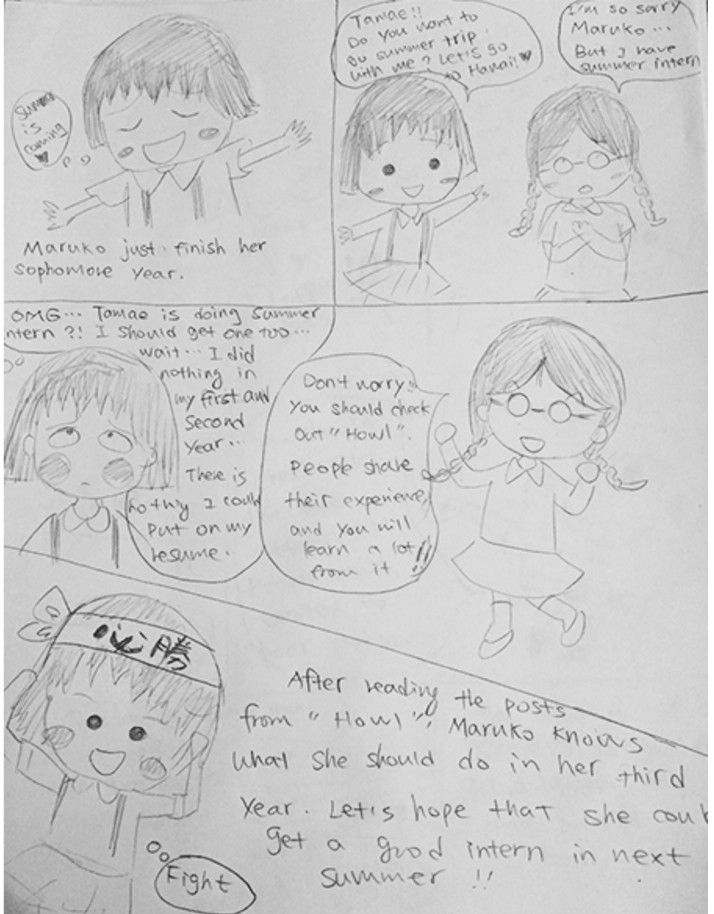 Summer
is
coming
Maruko just finish her
sophomore year.
Tamae!!
Do you want to
go summer trip
with me? Let's go
to Hawaii! ♥
I'm so sorry
Maruko...
But I have
summer intern
OMG... Tamae is doing Summer
ntern?! I should get one too...
wait... I did
nothing in
my first and
Second
Year...
There is
nothig I could
put on my
resume.
Don't worry!!
You should check
Out "Howl".
People share
their experience,
and you will
learn a lot
from it !!
必勝
After reading the posts
from "Howl", Maruko knows
what she should do in her third
Year. Let's hope that she coul
get a good intern in next
summer !!
Fight